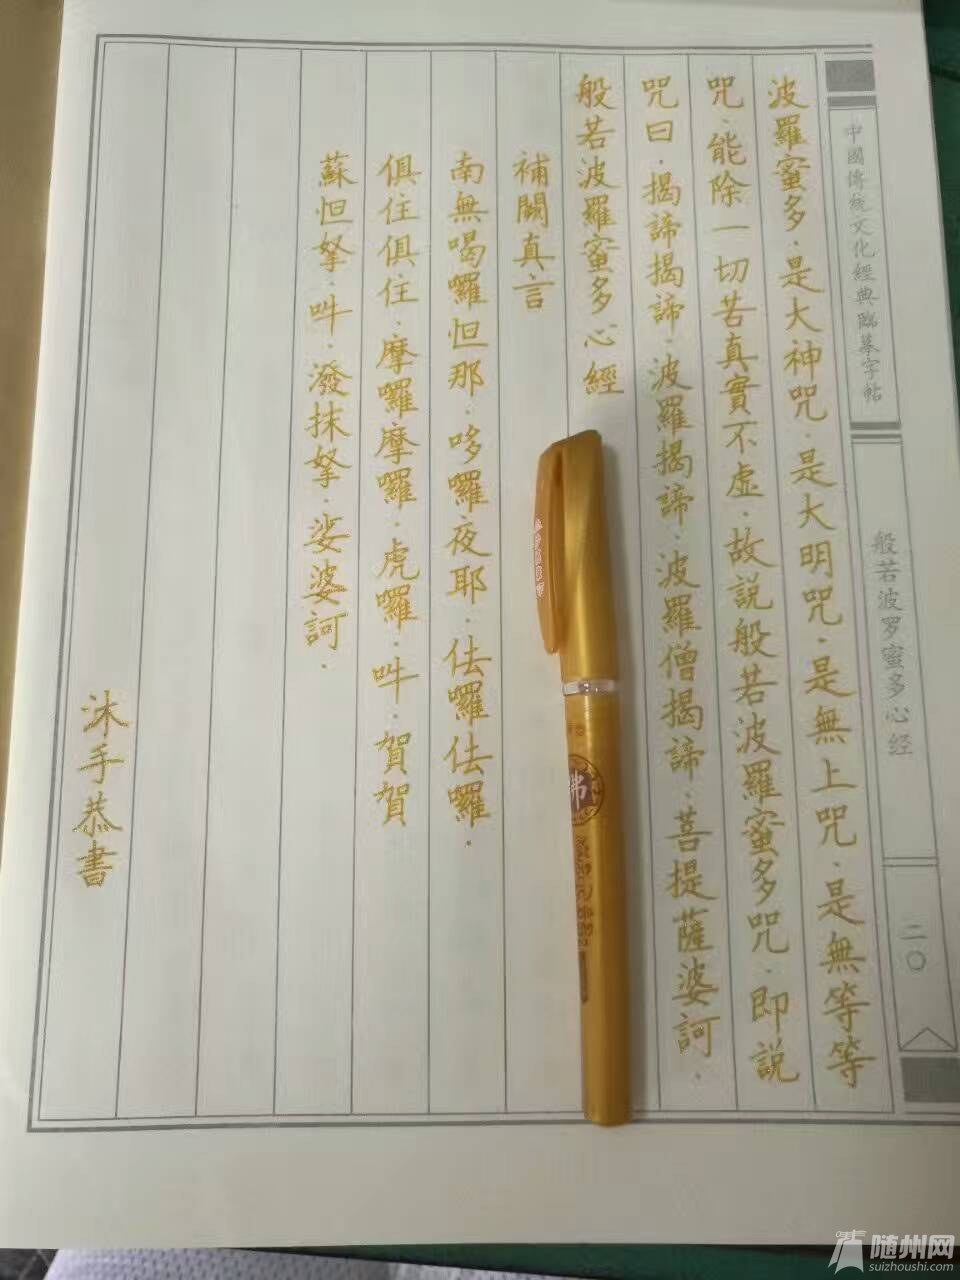 中國傳統文化經典臨摹字帖
般若波罗蜜多心经
二〇
波羅蜜多·是大神咒·是大明咒·是無上咒·是無等等
咒·能除一切苦真實不虛·故説般若波羅蜜多咒·即説
咒曰·揭諦揭諦·波羅揭諦·波羅僧揭諦·菩提薩婆訶·
般若波羅蜜多心經
補闕真言
南無喝囉怛那·哆囉夜耶·佉囉佉囉·
俱住俱住·摩囉摩囉·虎囉·吽·賀賀
蘇怛拏·吽·潑抹拏·娑婆訶·
沐手恭書
佛
随州网
suizhoushi.com